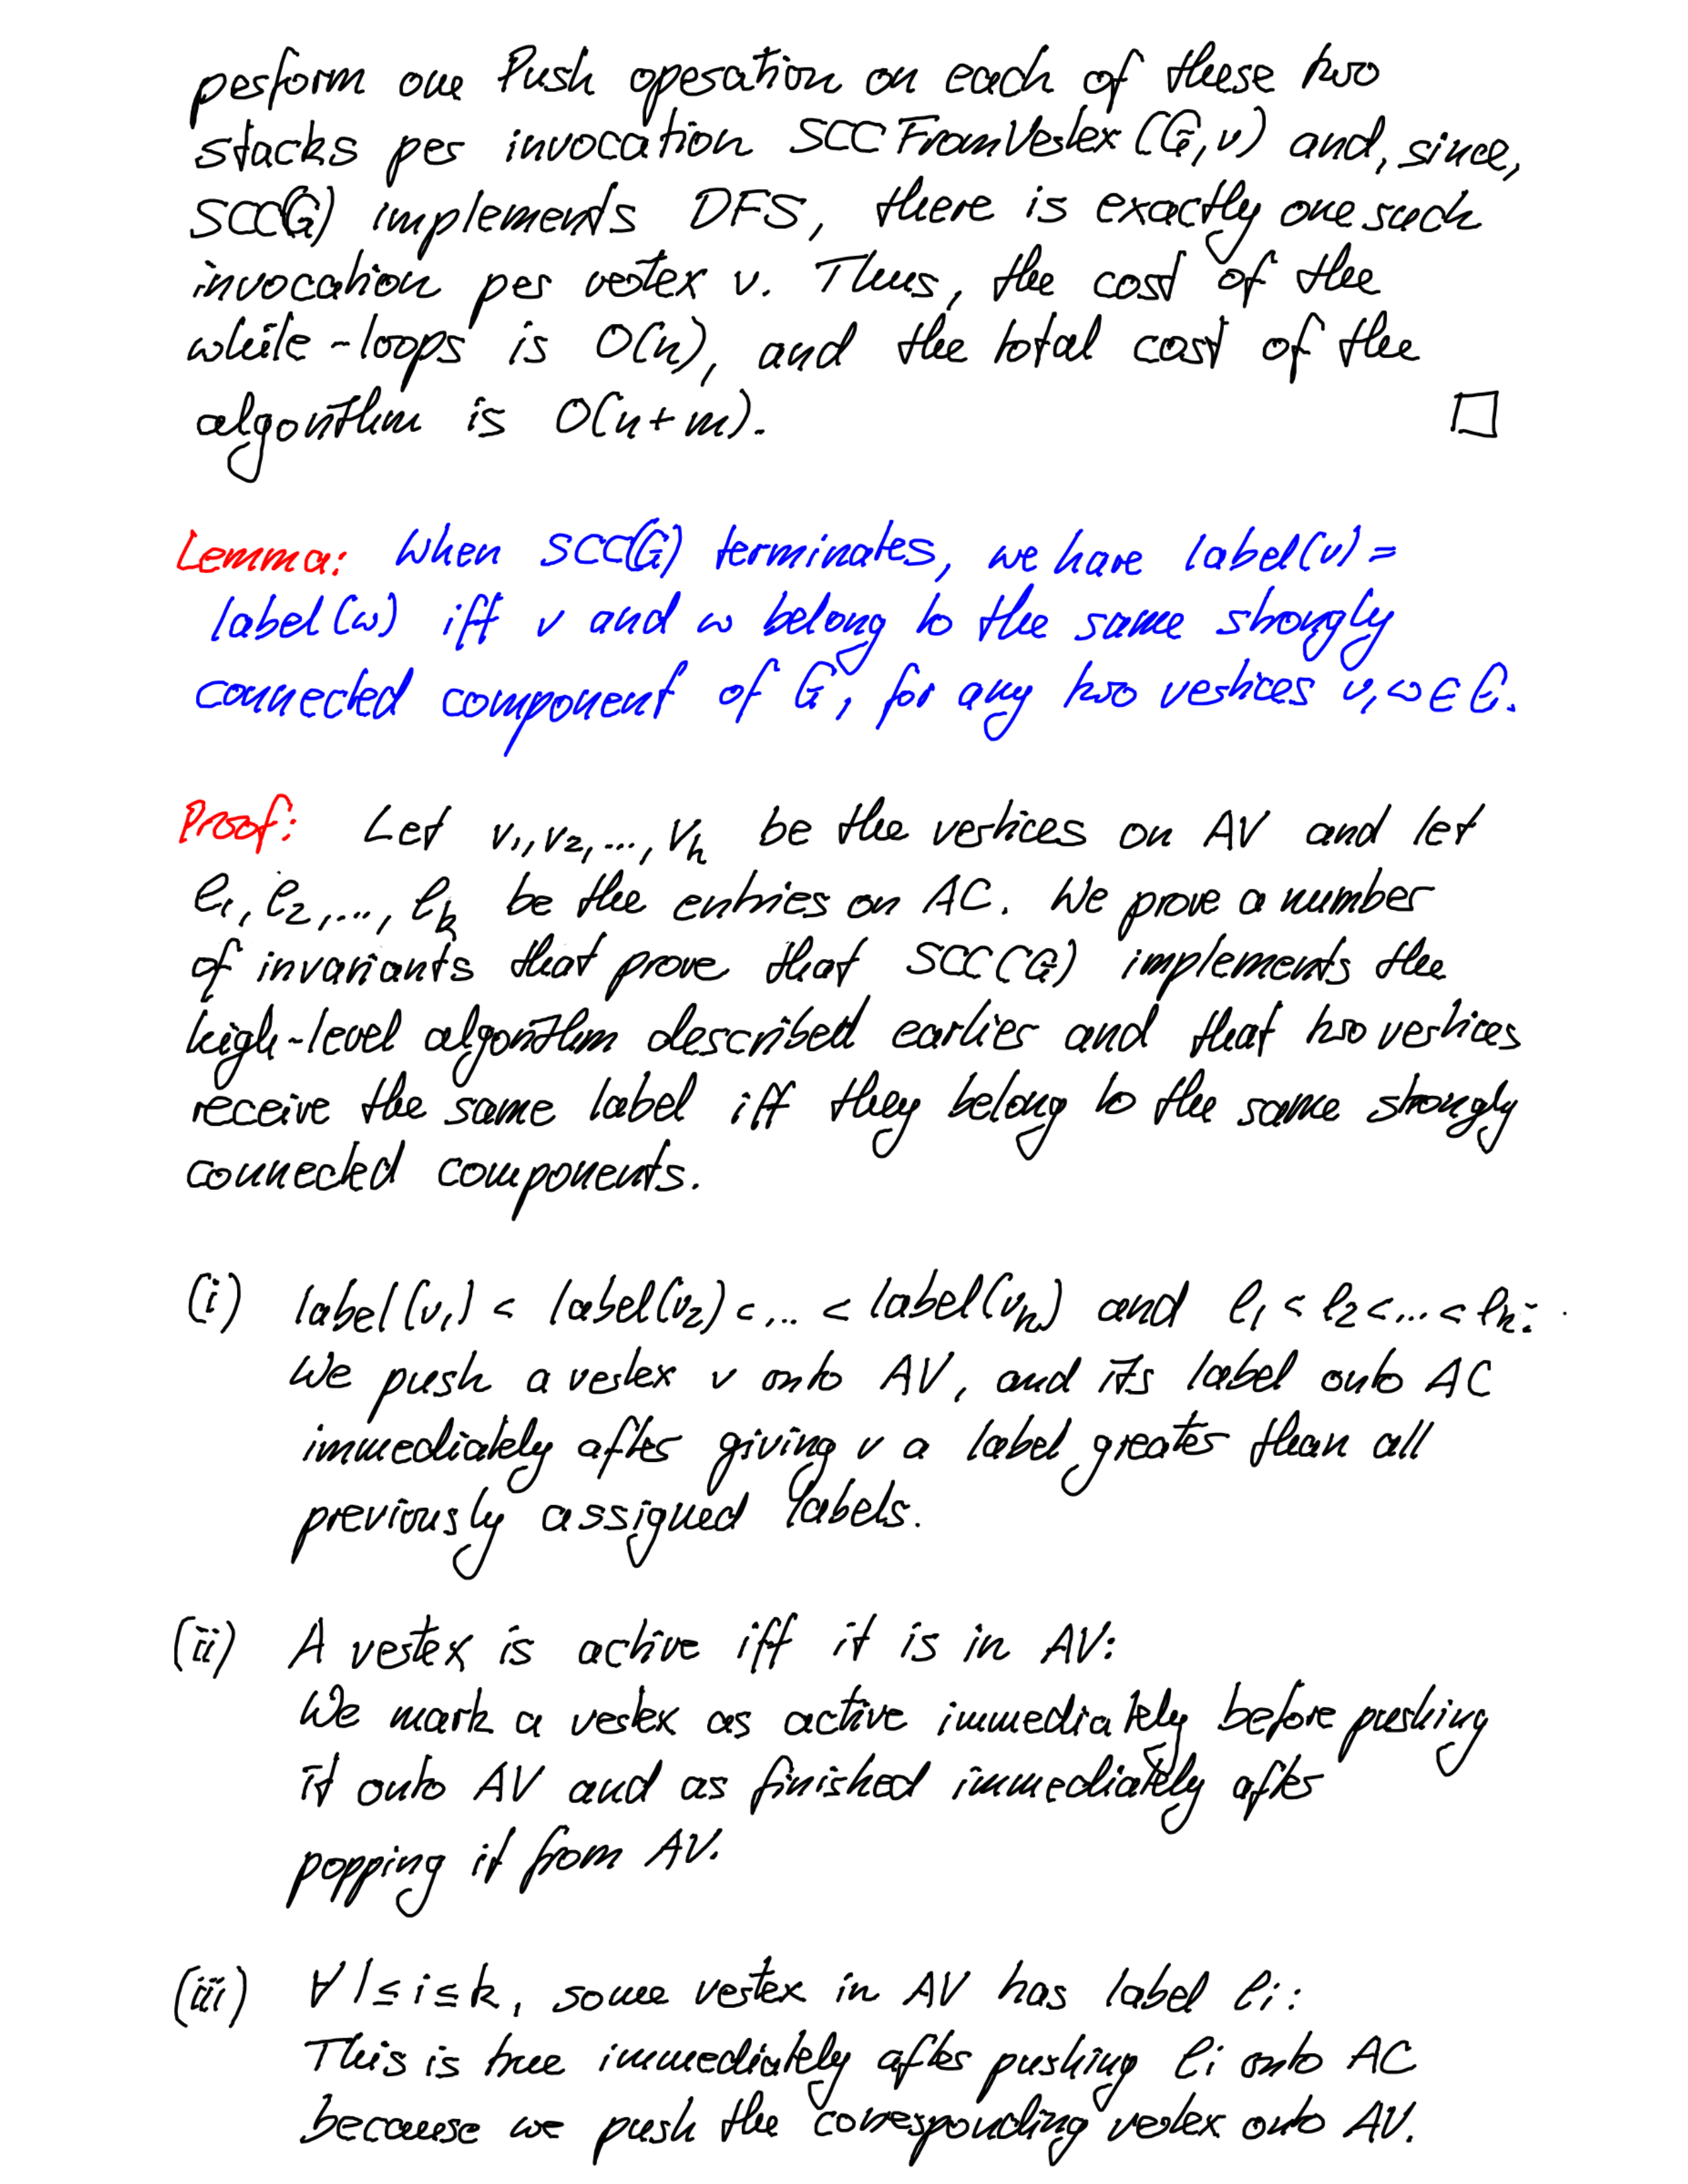 perform one Push operation on each of these two
stacks per invocation SCCFromVertex(G,v) and, since,
SCC(G) implements DFS, there is exactly one such
invocation per vertex v. Thus, the cost of the
while-loops is O(n), and the total cost of the
algorithm is O(n+m). □
Lemma: When SCC(G) terminates, we have label(v) =
label(w) iff v and w belong to the same strongly
connected component of G, for any two vertices v, w ∈ G.
Proof: Let v₁, v₂, ..., vₕ be the vertices on AV and let
ℓ₁, ℓ₂, ..., ℓₖ be the entries on AC. We prove a number
of invariants that prove that SCC(G) implements the
high-level algorithm described earlier and that two vertices
receive the same label iff they belong to the same strongly
connected components.
(i) label(v₁) < label(v₂) < ... < label(vₕ) and ℓ₁ < ℓ₂ < ... < ℓₖ:
We push a vertex v onto AV, and its label onto AC
immediately after giving v a label greater than all
previously assigned labels.
(ii) A vertex is active iff it is in AV:
We mark a vertex as active immediately before pushing
it onto AV and as finished immediately after
popping it from AV.
(iii) ∀ 1 ≤ i ≤ k, some vertex in AV has label ℓᵢ:
This is true immediately after pushing ℓᵢ onto AC
because we push the corresponding vertex onto AV.